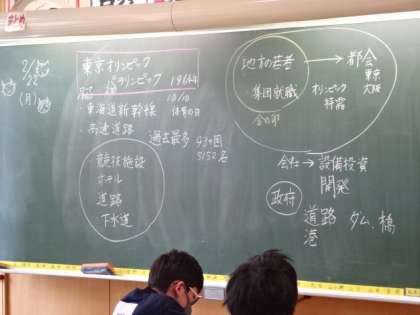 2/22
(月)
東京オリンピック
パラリンピック 1964
10/10
体育の日
・東海道新幹線
・高速道路
過去最多 93ヶ国
5152名
競技施設
ホテル
道路
下水道
地方の若者 → 都会
東京
大阪
集団就職
オリンピック
特需
金の卵
会社 → 設備投資
開発
政府
道路 ダム、橋
港